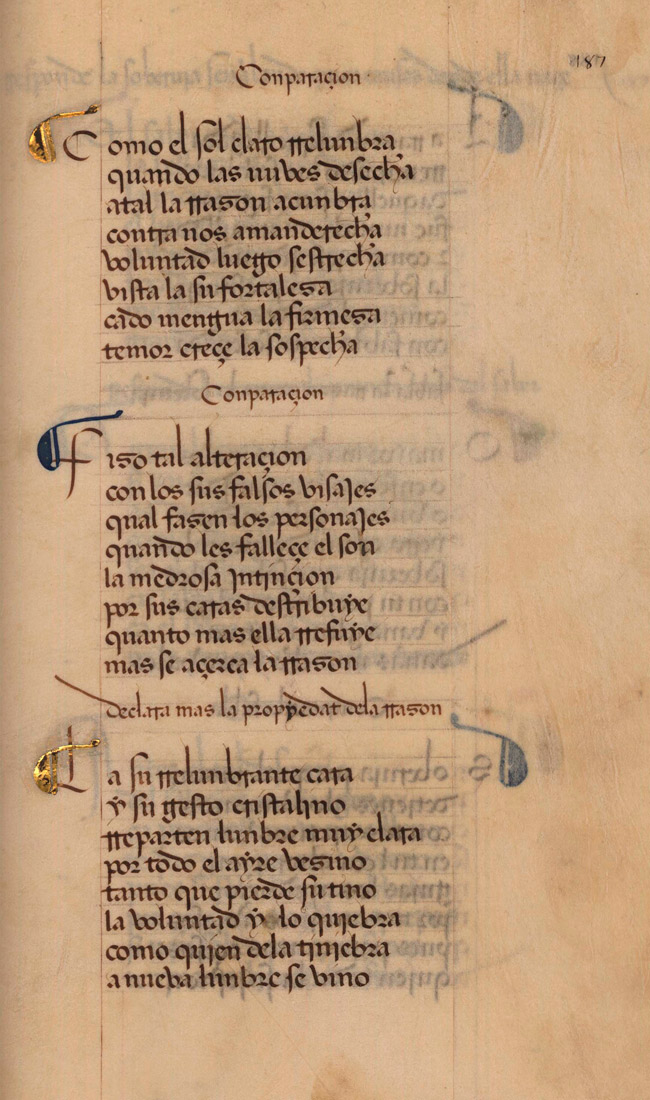 187
Conparaçion
Como el sol claro rrelunbra
quando las nuves desecha
atal la rrason acunbra
contra nos amanderecha
voluntad luego sestrecha
vista la su fortalesa
cado mengua la firmesa
temor creçe la sospecha
Conparaçion
Fiso tal alteraçion
con los sus falsos visajes
qual fasen los personajes
quando les falleçe el son
la medrosa jntinçion
por sus caras destribuye
quanto mas ella rrefuye
mas se açerca la rrason
declara mas la propyedat dela rrason
La su rrelunbrante cara
y su gesto cristalino
rreparten lunbre muy clara
por todo el ayre vesino
tanto que pierde su tino
la voluntad y lo quiebra
como quien dela tiniebra
a nueva lunbre se vino